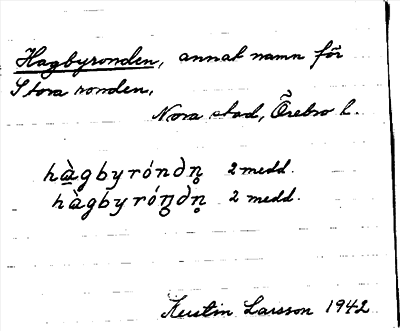 Hagbyronden, annat namn för
Stora ronden,
Nora stad, Örebro l.
hàgbyróndn̥ 2 medd.
hàgbyróŋdn̥ 2 medd.
Kerstin Larsson 1942